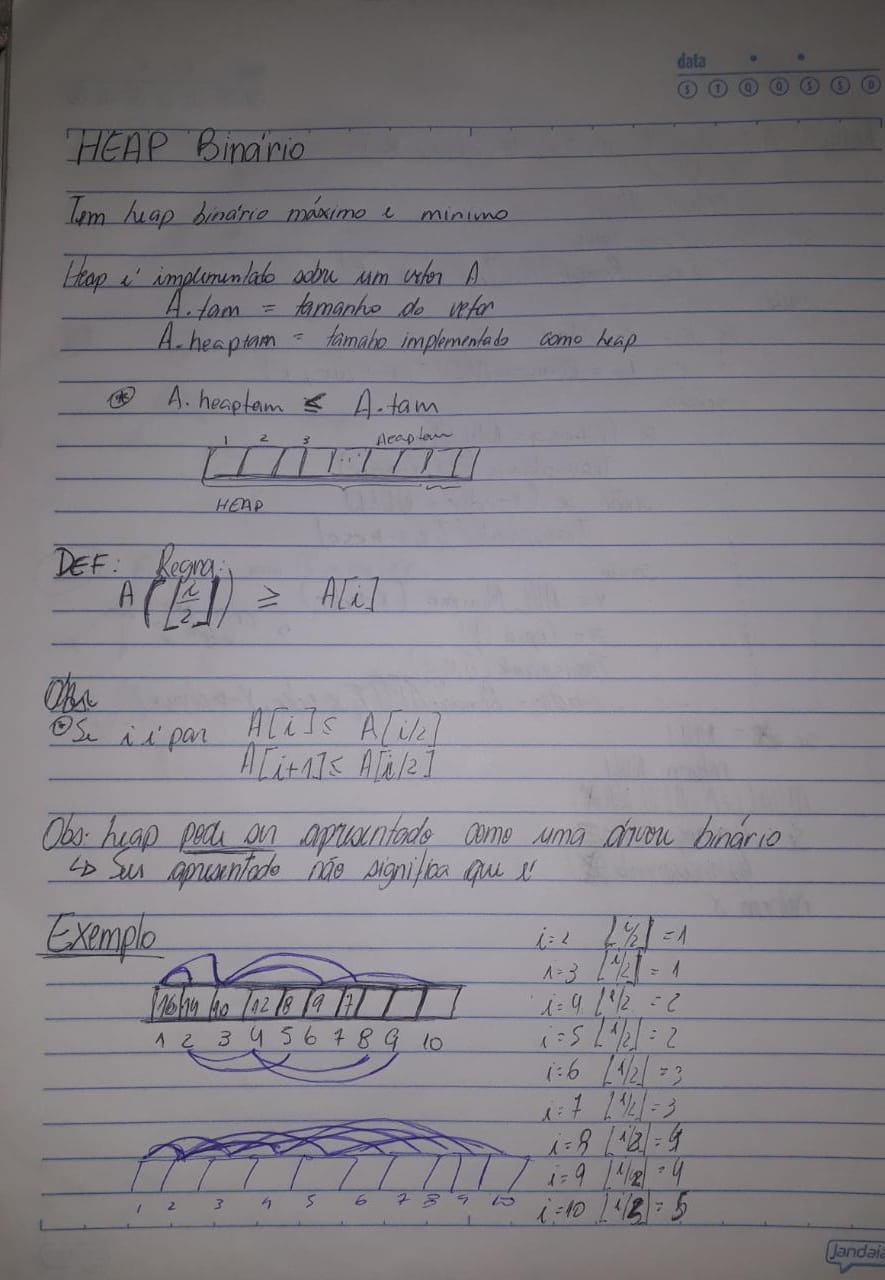 data
S T Q Q S S D
HEAP Binário
Tem heap binário máximo e minimo
Heap é implementado sobre um vetor A
A.tam = tamanho do vetor
A.heaptam = tamaho implementado como heap
* A.heaptam ≤ A.tam
1 2 3 Aeaptam
...
HEAP
DEF: Regra:
A(⌊i/2⌋) ≥ A[i]
Obs:
* Se i é par A[i] ≤ A[i/2]
A[i+1] ≤ A[i/2]
Obs: heap pode ser apresentado como uma árvore binário
↳ Ser apresentado não significa que é
Exemplo
16 14 10 12 8 9 7
1 2 3 4 5 6 7 8 9 10
1 2 3 4 5 6 7 8 9 10
i=2 ⌊i/2⌋ = 1
i=3 ⌊i/2⌋ = 1
i=4 ⌊i/2 = 2
i=5 ⌊i/2⌋ = 2
i=6 ⌊i/2⌋ = 3
i=7 ⌊i/2⌋ = 3
i=8 ⌊i/2⌋ = 4
i=9 ⌊i/2⌋ = 4
i=10 ⌊i/2⌋ = 5
Jandaia